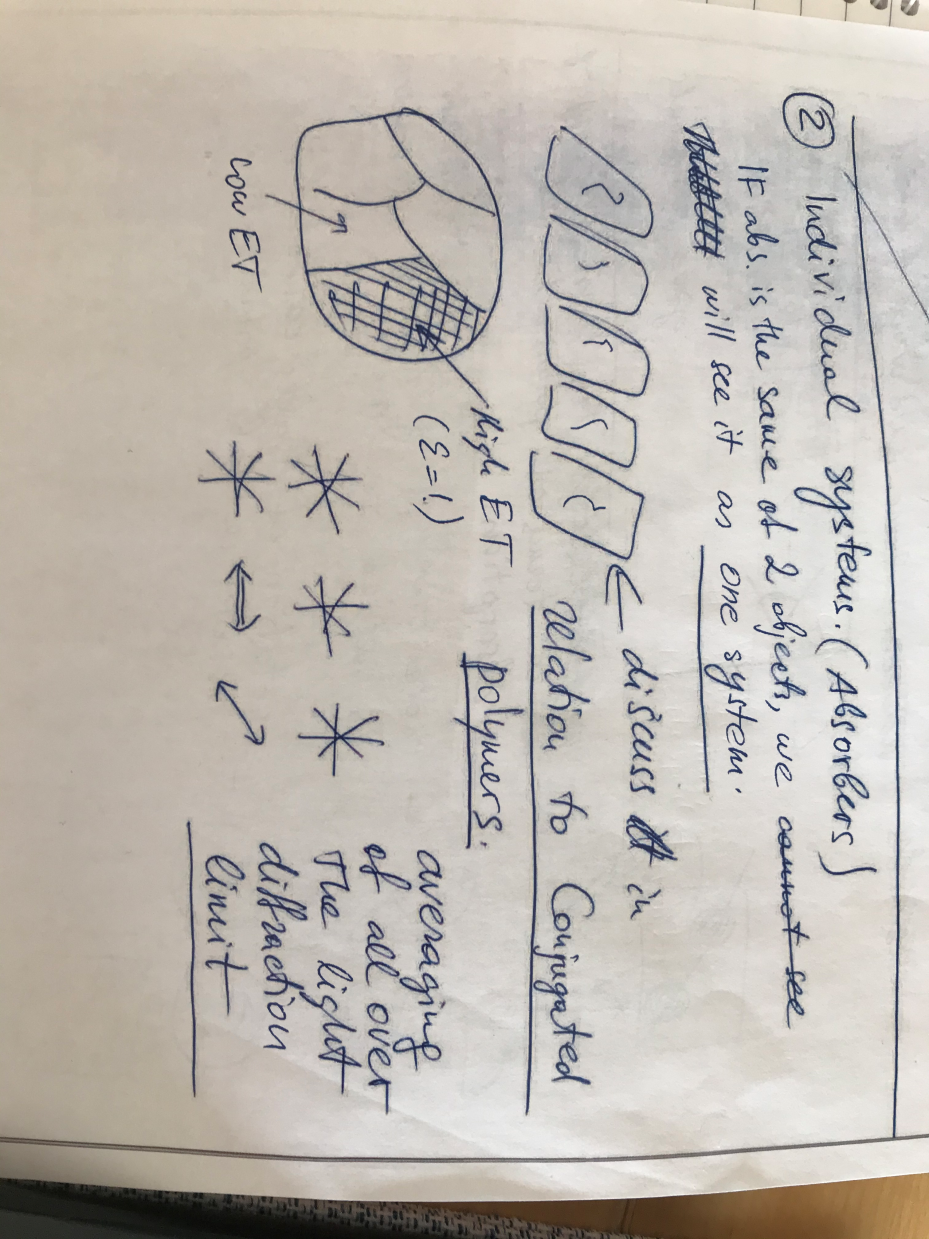 ② Individual systems. (Absorbers)
IF abs. is the same of 2 objects, we cannot see
will see it as one system.
← discuss it in
relation to Conjugated
polymers.
High ET
(ε=1.)
low ET
averaging
of all over
The light
diffraction
limit